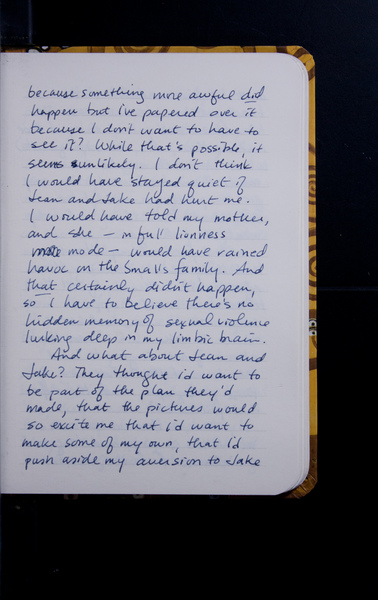 because something more awful did
happen but I've papered over it
because I don't want to have to
see it? While that's possible, it
seems unlikely. I don't think
I would have stayed quiet if
Jean and Jake had hurt me.
I would have told my mother,
and she – in full lioness
mode – would have rained
havoc on the Small's family. And
that certainly didn't happen,
so I have to believe there's no
hidden memory of sexual violence
lurking deep in my limbic brain.
And what about Jean and
Jake? They thought I'd want to
be part of the plan they'd
made, that the pictures would
so excite me that I'd want to
make some of my own, that I'd
push aside my aversion to Jake